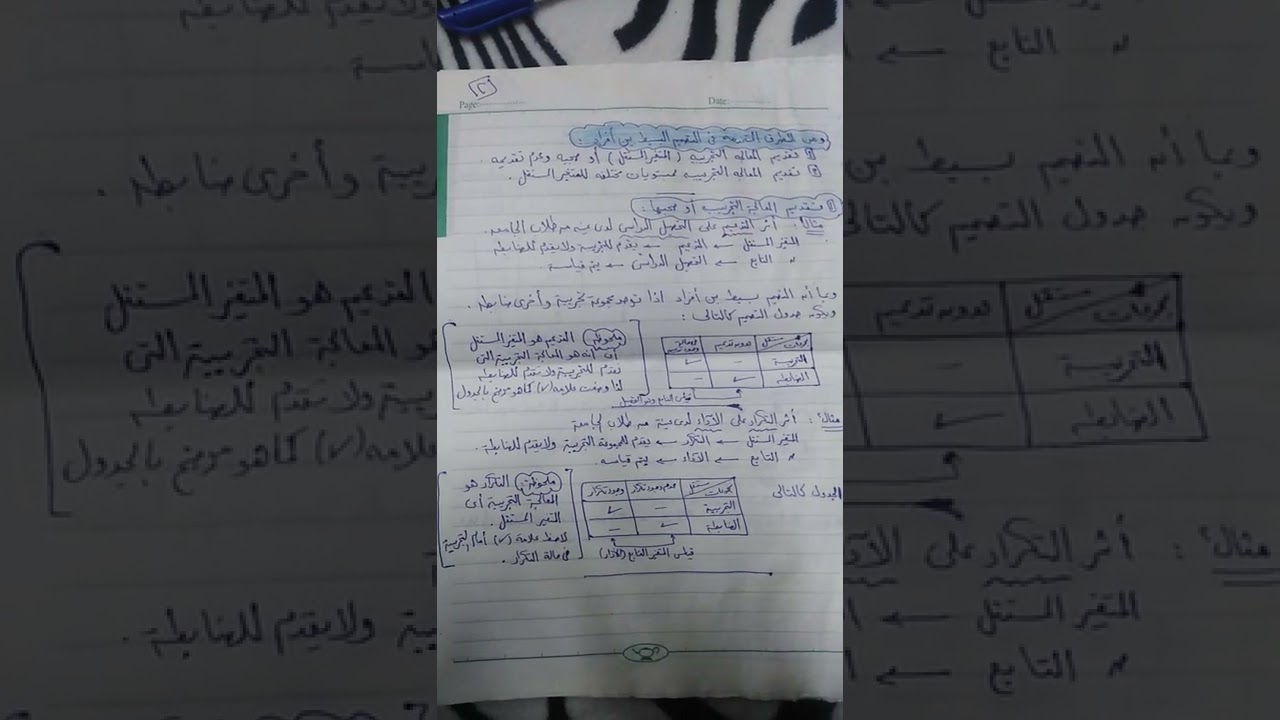 ٢
Page:
Date:
ومن الطرق التقديمية في التصميم البسيط بين أفراد :
١ تقديم المعالجة التجريبية (المتغير المستقل) أو حجبه وعدم تقديمه .
٢ تقديم المعالجة التجريبية بمستويات مختلفة للمتغير المستقل .
١ تقديم المعالجة التجريبية أو حجبها :
مثال : أثر التدعيم على التحصيل الدراسي لدى عينة من طلاب الجامعة .
المتغير المستقل ← التدعيم ← يقدم للتجريبية ولا يقدم للضابطة
〃 التابع ← التحصيل الدراسي ← يتم قياسة
وبما أنه التصميم بسيط بين أفراد إذا توجد مجموعة تجريبية وأخرى ضابطة .
ويكون جدول التصميم كالتالي :
مستقل
مجموعات
بدون تدعيم
التجريبية
–
✓
الضابطة
✓
–
ملحوظة التدعيم هو المتغير المستقل
أي أنه هو المعالجة التجريبية التي
تقدم للتجريبية ولا تقدم للضابطة
لذا وضعت علامة (✓) كما هو موضح بالجدول
مثال : أثر التكرار على الأداء لدى عينة من طلاب الجامعة
المتغير المستقل ← التكرار ← يقدم للمجموعة التجريبية ولا يقدم للضابطة .
〃 التابع ← الأداء ← يتم قياسه .
الجدول كالتالي
مستقل
مجموعات
عدم وجود تكرار
وجود تكرار
التجريبية
–
✓
الضابطة
✓
–
قياس المتغير التابع (الأداء)
ملحوظة التكرار هو
المعالجة التجريبية أي
المتغير المستقل .
لاحظ علامة (✓) أمام التجريبية
في حالة التكرار .